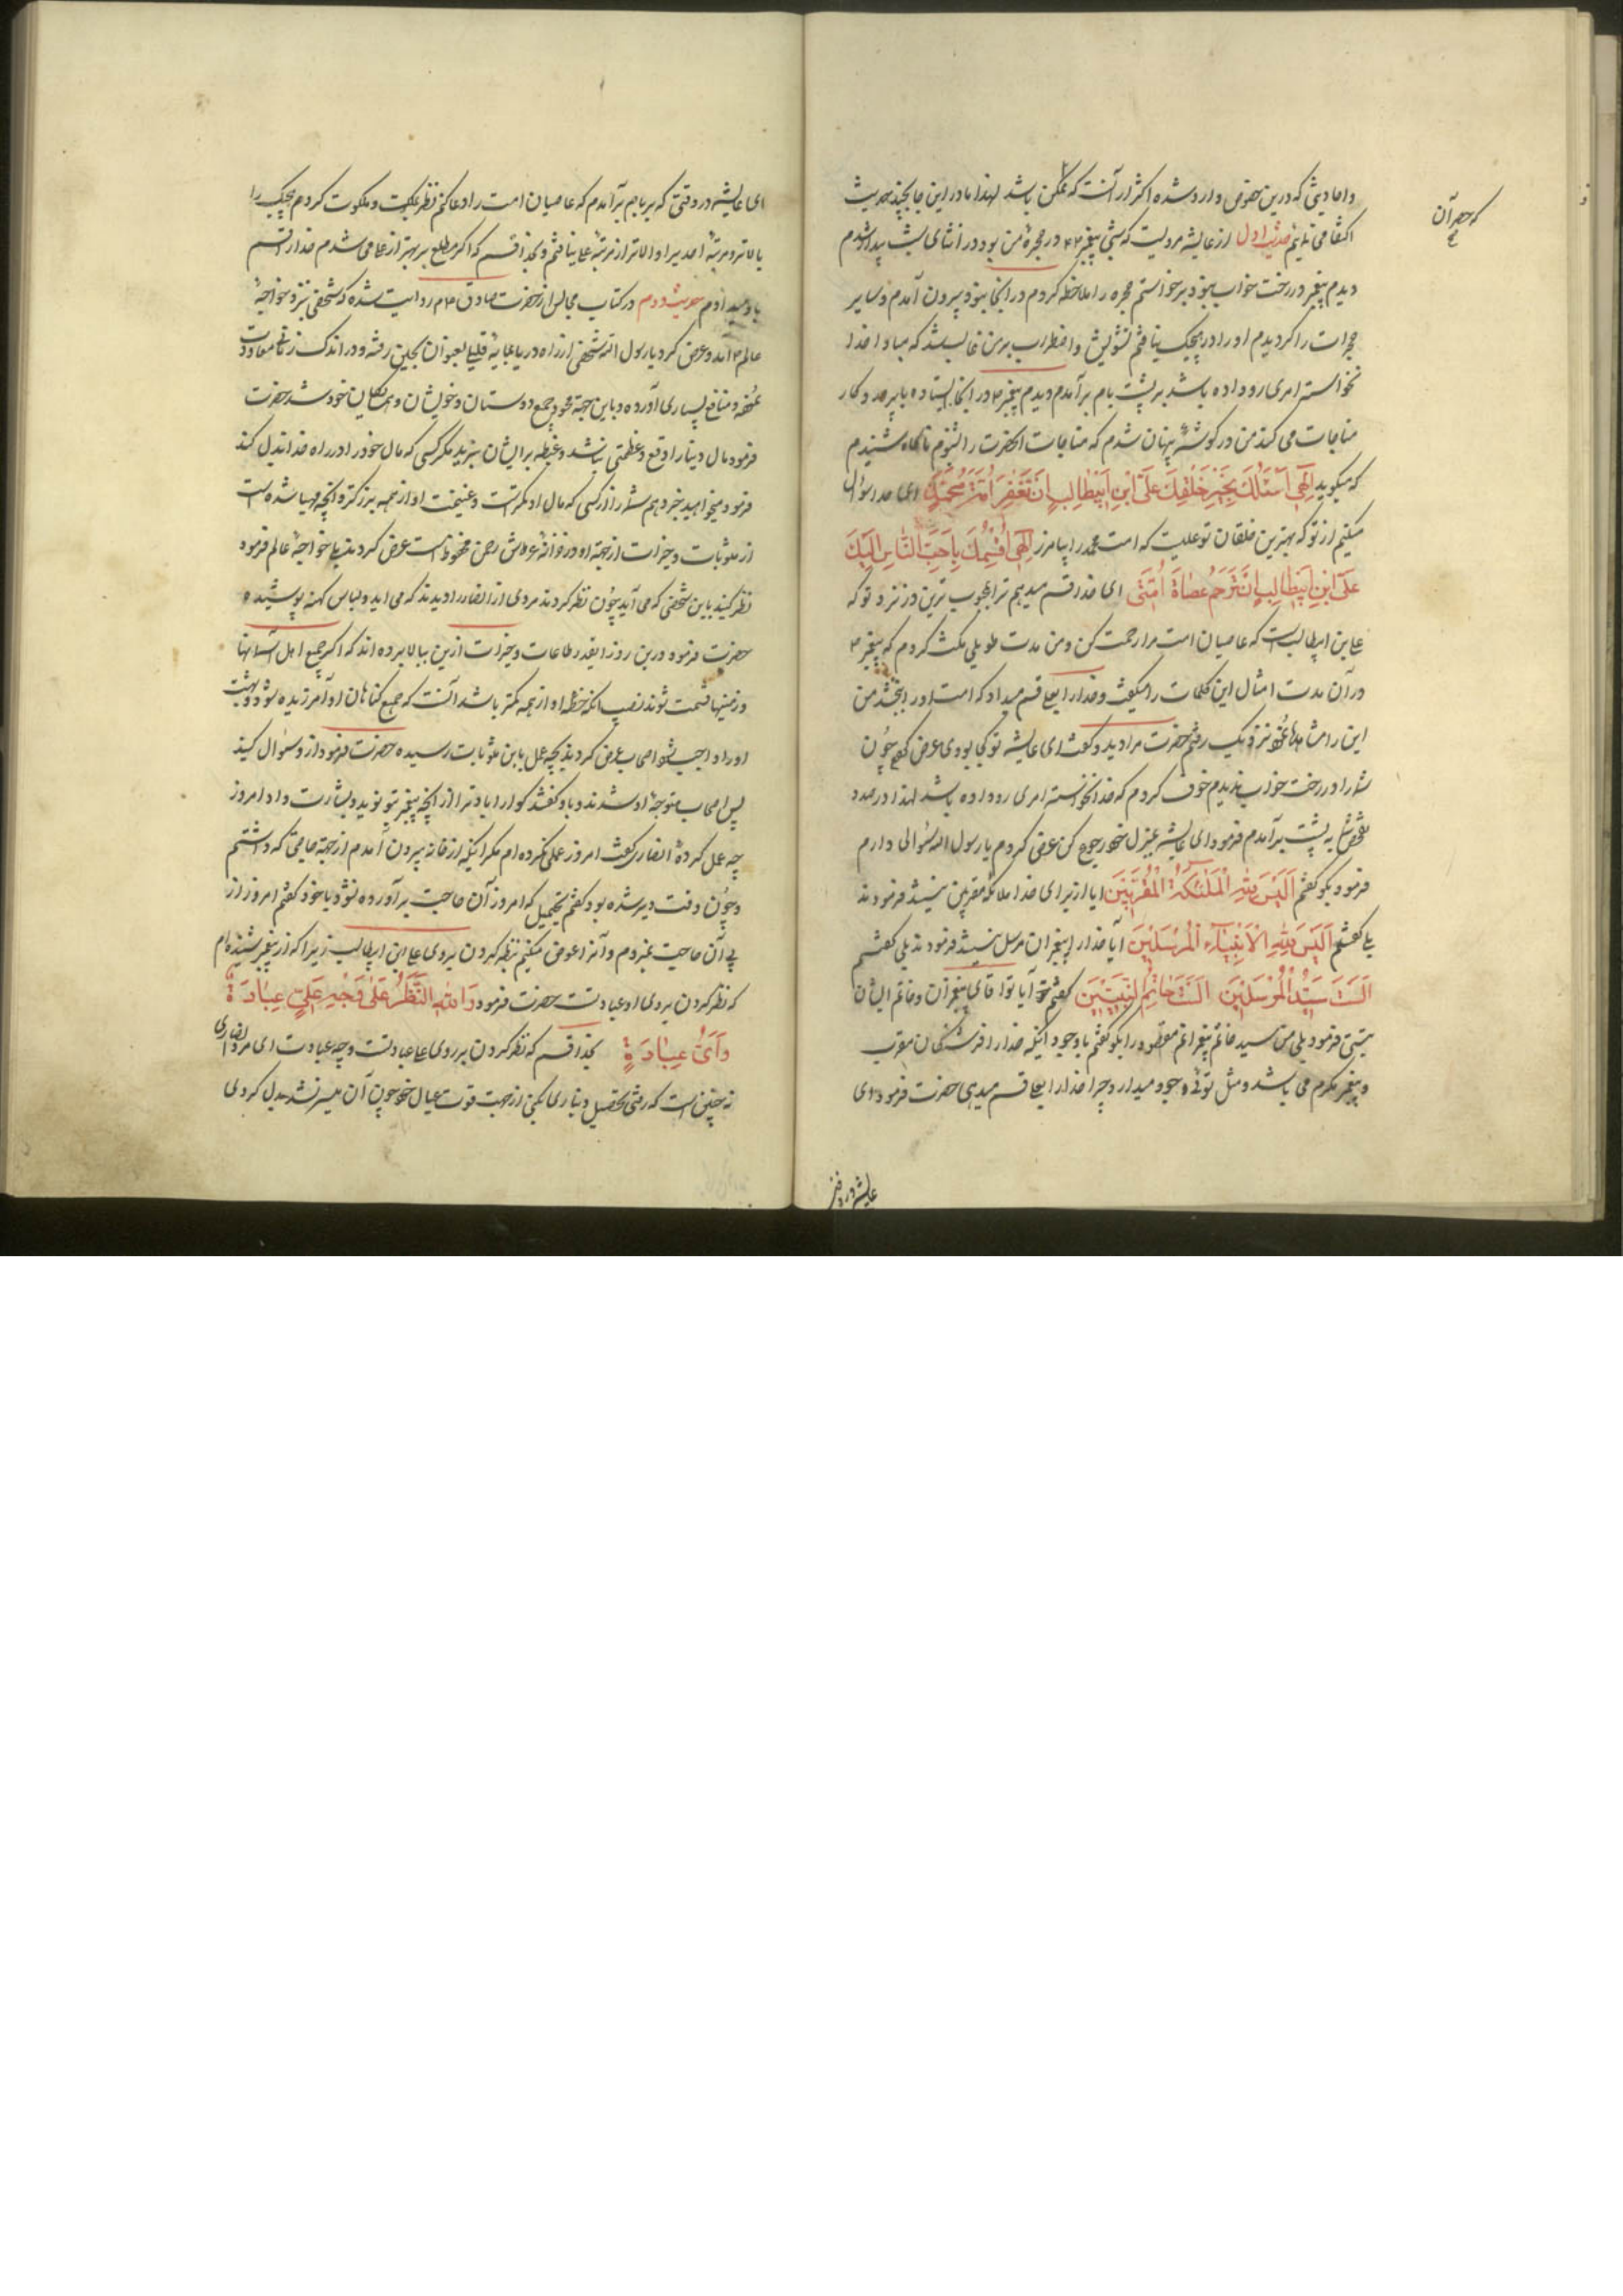 و احادیثی که درین خصوص وارد شده اکثر از آنست که ممکن باشد لهذا ما در این جا بچند حدیث
که حصر آن
اکتفا می نمایم حدیث اول از عایشه مرویست که شبی پیغمبر در حجرهٔ من بود در اثنای شب بیدار شدم
دیدم پیغمبر در رخت خواب نبود برخواستم حجره را ملاحظه کردم در آنجا نبود بیرون آمدم و سایر
حجرات را گردیدم او را در هیچیک نیافتم تشویش و اضطراب بر من غالب شد که مبادا خدا
نخواسته امری رو داده باشد بر پشت بام بر آمدم دیدم پیغمبر در آنجا ایستاده با پروردکار
مناجات می کند من در کوشهٔ پنهان شدم که مناجات آنحضرت را بشنوم ناکاه شنیدم
که میکوید اِلٰهی اَسْئَلُکَ بِخَیْرِ خَلْقِکَ عَلیِّ ابْنِ اَبیطالِبٍ اَنْ تَغْفِرَ اُمَّةَ مُحَمَّدٍ ای خدا سؤال
میکنم از تو که بهترین خلقان تو علیست که امت محمد را بیامرز اِلٰهی اُقْسِمُکَ بِاَحَبِّ النّاسِ اِلَیْکَ
عَلیِّ ابْنِ اَبیطالِبٍ اَنْ تَرْحَمَ عُصاةَ اُمَّتی ای خدا قسم میدهم ترا بمحبوب ترین در نزد تو که
علی بن ابیطالبست که عاصیان امت مرا رحمت کن و من مدت طویلی مکث کردم که پیغمبر
در آن مدت امثال این کلمات را میکفت و خدا را بعلی قسم میداد که امت او را بخشد من
این را مشاهده نموده نزدیک رفتم حضرت مرا دید و کفت ای عایشه تو کجا بودی عرض کردم چون
شما را در رخت خواب ندیدم خوف کردم که خدا نخواسته امری رو داده باشد لهذا در صدد
تفحص به پشت بر آمدم فرمود ای عایشه بمنزل خود رجوع کن عرض کردم یا رسول الله سؤالی دارم
فرمود بکو کفتم اَلَیْسَ لِلّٰهِ الْمَلٰئِکَةُ الْمُقَرَّبینَ ایا از برای خدا ملائکه مقربین نیستند فرمودند
بلی کفتم اَلَیْسَ لِلّٰهِ الْاَنْبِیٰاءِ الْمُرْسَلینَ آیا خدا را پیغمبران مرسل نیستند فرمودند بلی کفتم
اَلَسْتَ سَیِّدُ الْمُرْسَلینَ اَلَسْتَ خاتِمُ النَّبِیّینَ کفتم آیا تو اقای پیغمبران و خاتم ایشان
نیستی فرمود بلی من سید و خاتم پیغمبرانم مقصود را بکو کفتم با وجود اینکه خدا را فرشتکان مقرب
و پیغمبر مکرم می باشد و مثل توئی وجود میدارد چرا خدا را بعلی قسم میدهی حضرت فرمود ای
عایشه در وقتی
ای عایشه در وقتی که بر بام بر آمدم که عاصیان امت را دعا کنم نظر بملک و ملکوت کردم هیچیک را
بالاتر و مرتبهٔ احدیرا والاتر از مرتبهٔ علی نیافتم و بخدا قسم که اکر مطلع بر بهتر از علی می شدم خدا را قسم
باو میدادم حدیث دوم در کتاب مجالس از حضرت صادق روایت شده که شخصی بنزد خواجهٔ
عالم آمد و عرض کرد یا رسول الله شخصی از راه دریا بمایهٔ قلیلی بعنوان بچین رفته و در اندک زمانی معاودت
نموده و منافع بسیاری آورده و باین جهة محسود جمیع دوستان و خویشان و همسایکان خود شد حضرت
فرمود مال دنیا را وقع و عظمتی نباشد و غبطه بر ایشان نبرید مکر کسی که مال خود را در راه خدا بذل کند
فرمود میخواهید خبر دهم شما را از کسی که مال او کمتر است و غنیمت او از همه بزرکتر و انچه مهیا شده است
از مثوبات و خیرات از جهة او در خزانهٔ عرش رحمن محفوظ است عرض کردند بلی خواجهٔ عالم فرمود
نظر کنید باین شخصی که می آید چون نظر کردند مردی از انصار را دیدند که می اید و لباس کهنه پوشیده
حضرت فرمود درین روز اینقدر طاعات و خیرات ازین ببالا برده اند که اکر بجمیع اهل آسمانها
و زمینها قسمت شود نصیب آنکه حظ او از همه کمتر باشد آنست که جمیع کناهان او آمرزیده شود و بهشت
او را واجب شود اصحاب عرض کردند بچه عمل باین مثوبات رسیده حضرت فرمود از و سؤال کنید
پس اصحاب متوجهٔ او شدند و باو کفتند کوارا باد ترا از انچه پیغمبر بتو نوید و بشارت داد امروز
چه عمل کردهٔ انصاری کفت امروز عملی نکرده ام مکر اینکه از خانه بیرون آمدم از جهة حاجتی که داشتم
و چون وقت دیر شده بود کفتم که امروز آن حاجت بر آورده نشود با خود کفتم امروز از
پی آن حاجت نمیروم و آنرا عوض میکنم بنظر کردن بروی علی بن ابیطالب زیرا که از پیغمبر شنیده ام
که نظر کردن بروی او عبادتست حضرت فرمود وَ اللّٰهِ النَّظَرُ عَلٰی وَجْهِ عَلِیٍّ عِبٰادَةٌ
وَ اَیُّ عِبٰادَةٍ بخدا قسم که نظر کردن بر روی علی عبادتست و چه عبادت ای مرد انصاری
نه چنین است که رفتی تحصیل دیناری بکنی از جهت قوت عیال خود چون آن میسر نشد بدل کردی